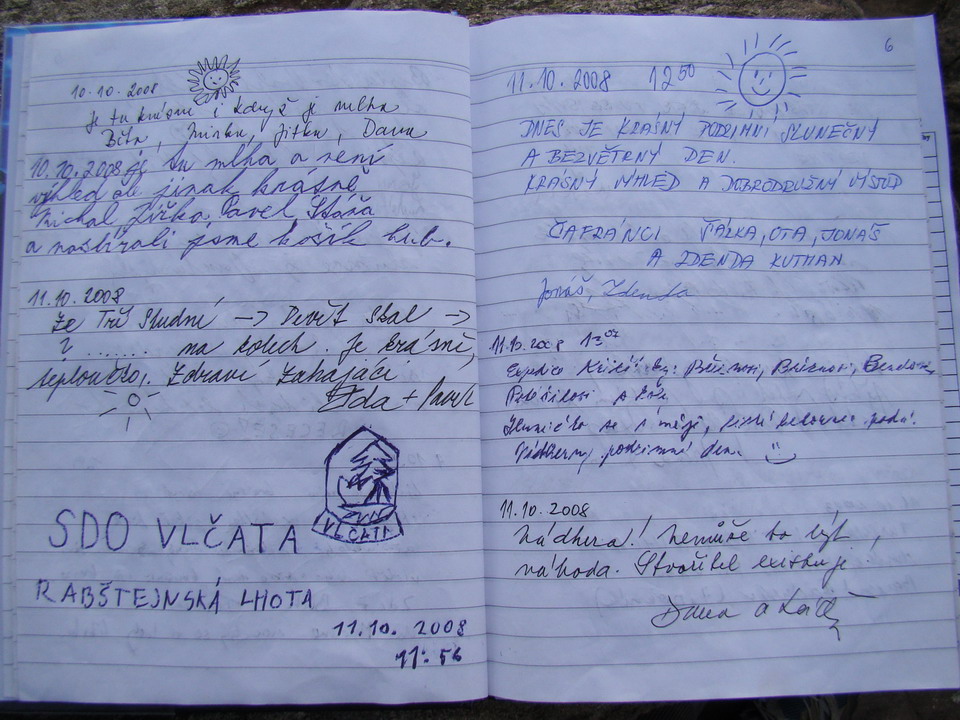 10.10.2008
Je tu krásně i když je mlha
Běta, Mirka, Jitka, Dana
10.10.2008 Je tu mlha a není
výhled ale jinak krásně
Michal Jiřka, Pavel, Stáňa
a nasbírali jsme košík hub.
11.10.2008
Ze Tří Studní -> Devět Skal ->
? ....... na kolech. Je krásně,
teploučko. Zdraví
Eda + Pavel
VLČATA
SDO VLČATA
RABŠTEJNSKÁ LHOTA
11.10. 2008
11:56
6
11.10.2008 12 50
DNES JE KRÁSNÝ PODZIMNÍ SLUNEČNÝ
A BEZVĚTRNÝ DEN.
KRÁSNÝ VÝHLED A DOBRODRUŽNÝ VÝSTUP
ČAFRÁNCI ŠÁLKA, OTA, JONÁŠ
A ZDENDA KUTHAN
Jonáš, Zdenda
11.10.2008 13 07
Expedice
a
se
podzimní den.
11.10.2008
Nádhera! Nemůže to být
náhoda. Stvořitel existuje!
Dana a